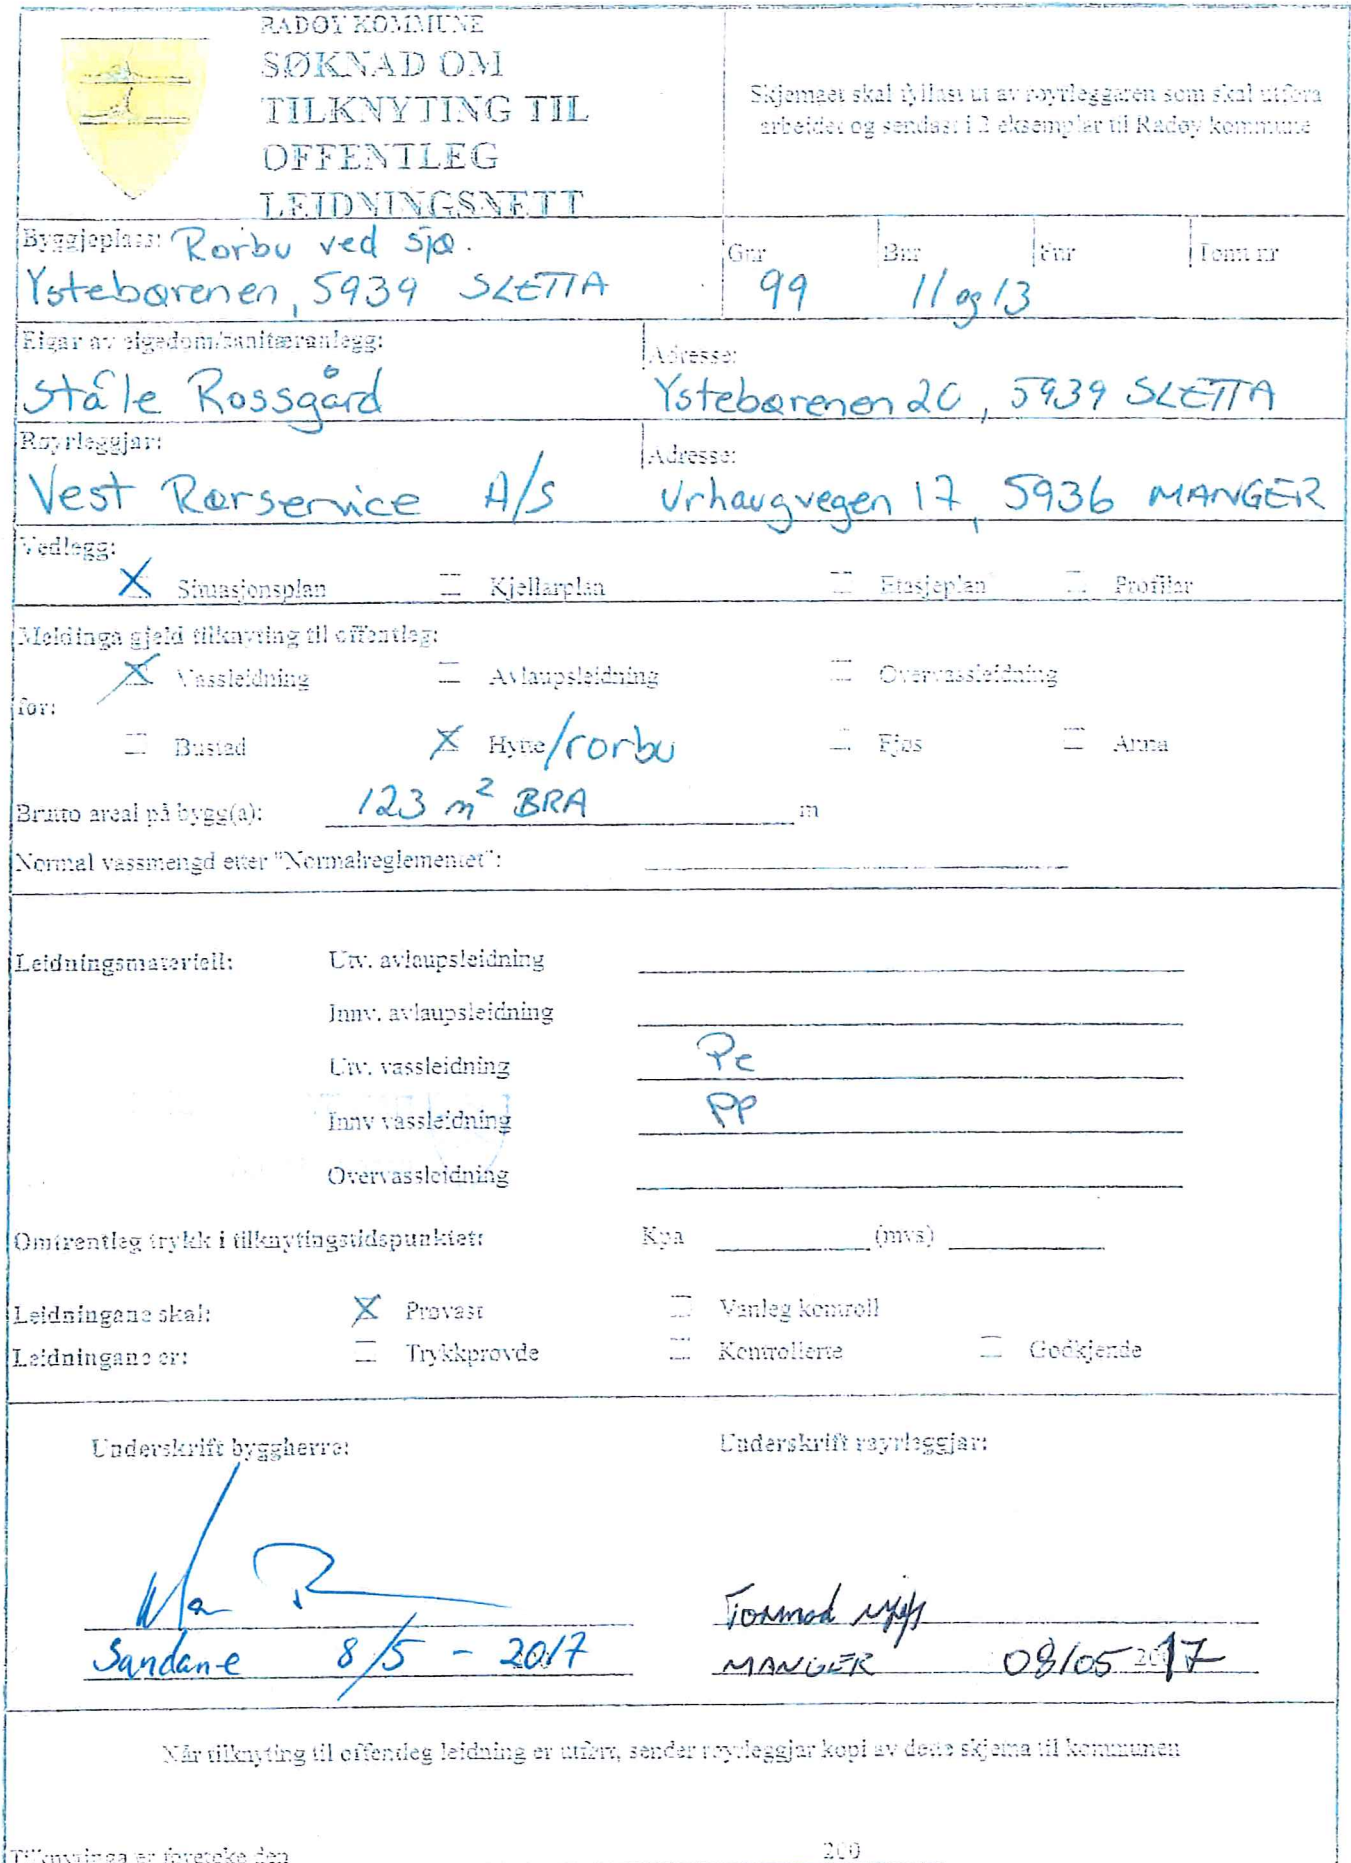 RADØY KOMMUNE
SØKNAD OM
TILKNYTING TIL
OFFENTLEG
LEIDNINGSNETT
Skjemaet skal fyllast ut av røyrleggaren som skal utføra
arbeidet og sendast i 2 eksemplar til Radøy kommune
Byggjeplass: Rorbu ved sjø.
Ystebørenen, 5939 SLETTA
Gnr Bnr Fnr Tomt nr
99 11 og 13
Eigar av eigedom/sanitæranlegg: Adresse:
Ståle Rossgård Ystebørenen 20, 5939 SLETTA
Røyrleggjar: Adresse:
Vest Rørservice A/S Urhaugvegen 17, 5936 MANGER
Vedlegg:
X Situasjonsplan Kjellarplan Etasjeplan Profilar
Meldinga gjeld tilknyting til offentleg:
X Vassleidning Avlaupsleidning Overvassleidning
for:
Bustad X Hytte/rorbu Fjøs Anna
Brutto areal på bygg(a): 123 m² BRA m
Normal vassmengd etter "Normalreglementet":
Leidningsmateriell: Utv. avlaupsleidning
Innv. avlaupsleidning
Utv. vassleidning Pe
Innv vassleidning PP
Overvassleidning
Omtrentleg trykk i tilknytingstidspunktet: Kpa (mvs)
Leidningane skal: X Prøvast Vanleg kontroll
Leidningane er: Trykkprøvde Kontrollerte Godkjende
Underskrift byggherre: Underskrift røyrleggjar:
Tormod
Sandane 8/5 - 2017 MANGER 08/05 2017
Når tilknyting til offentleg leidning er utført, sender røyrleggjar kopi av dette skjema til kommunen
Tilknytinga er foretoke den 200